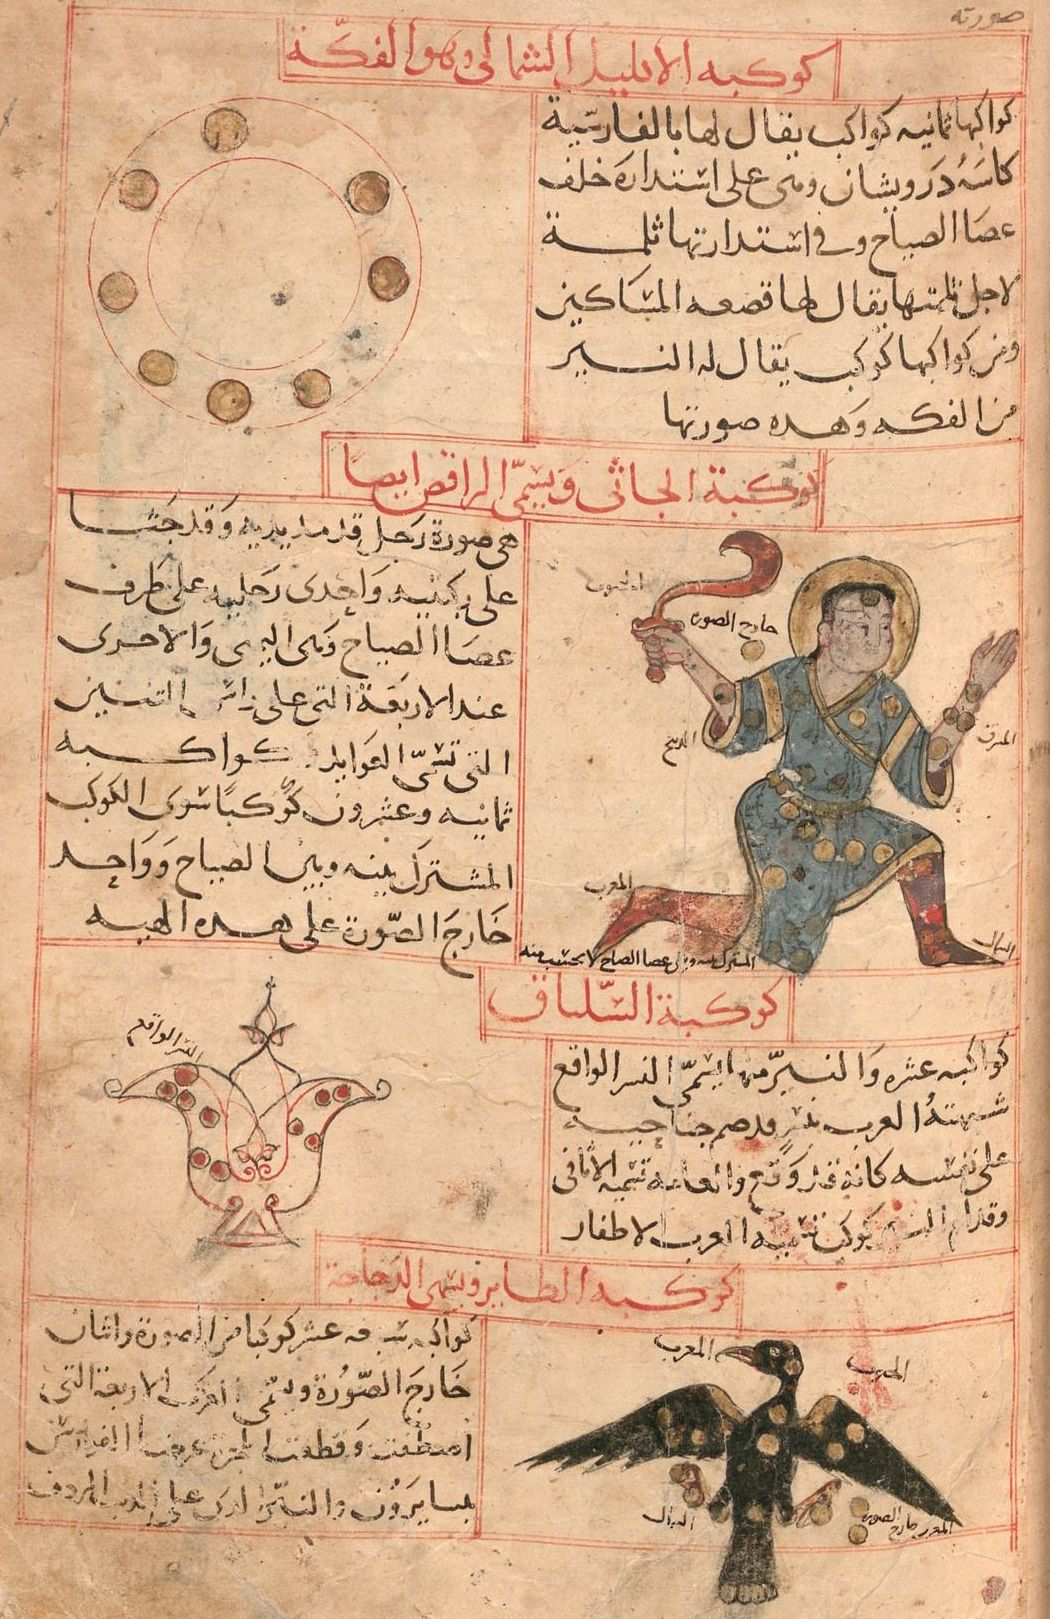 صورته
كوكبه الاكليل الشمالى وهو الفكّة
كواكبها ثمانيه كواكب يقال لها بالفارسية
كاسَهٔ دَرويشان وهى على استدارَة خلف
عصَا الصياح وفى استدارتها ثلمــة
لاجل ثلمتها يقال لها قصعه المسَاكين
ومن كواكبها كوكب يقال له النــير
من الفكه وَهده صورتها
كوكبة الجاثى وَيسمّى الراقص ايضًا
هى صورة رَجل قد مد يديه وَقد جَثــا
على ركبتيه وَاحدى رَجليه على طَرف
عصَا الصياح وَهى اليمنى وَالاخرى
عند الاربعَة التى على راس التنــين
التى تسَمّى العَوايد كواكــبه
ثمانيه وعشرون كوكبًا سوَى الكوكب
المشترك بينه وبين الصياح وَوَاحــد
خَارجَ الصّورة على هــده الهيه
الجنوب
خارج الصوره
المشرق
المغرب
الشمال
المشترك بينه وبين عصا الصياح لا يحتسب منه
كوكبة السّلياق
كواكبه عشره وَالنــيرّ منها يسَمّى النسر الواقع
شبهتهُ العرب بنسرٍ قد ضم جناحَيــه
على نفسه كانهُ قد وَقع والعامة تسميه الاثافى
وقدام النسر كوكب تسميه العرب الاظفار
النسر الواقع
كوكبــه الطاير ويسمى الدَجاجة
كواكبه سبعه عشر كوكبًا من الصورة واثنان
خَارجَ الصّوُرة ويسَمّى العرب الاربعة التى
اصطفت وَقطعت المجرة عرضًا الفوارس
المغرب
الجنوب
الشمال
خارج الصوره